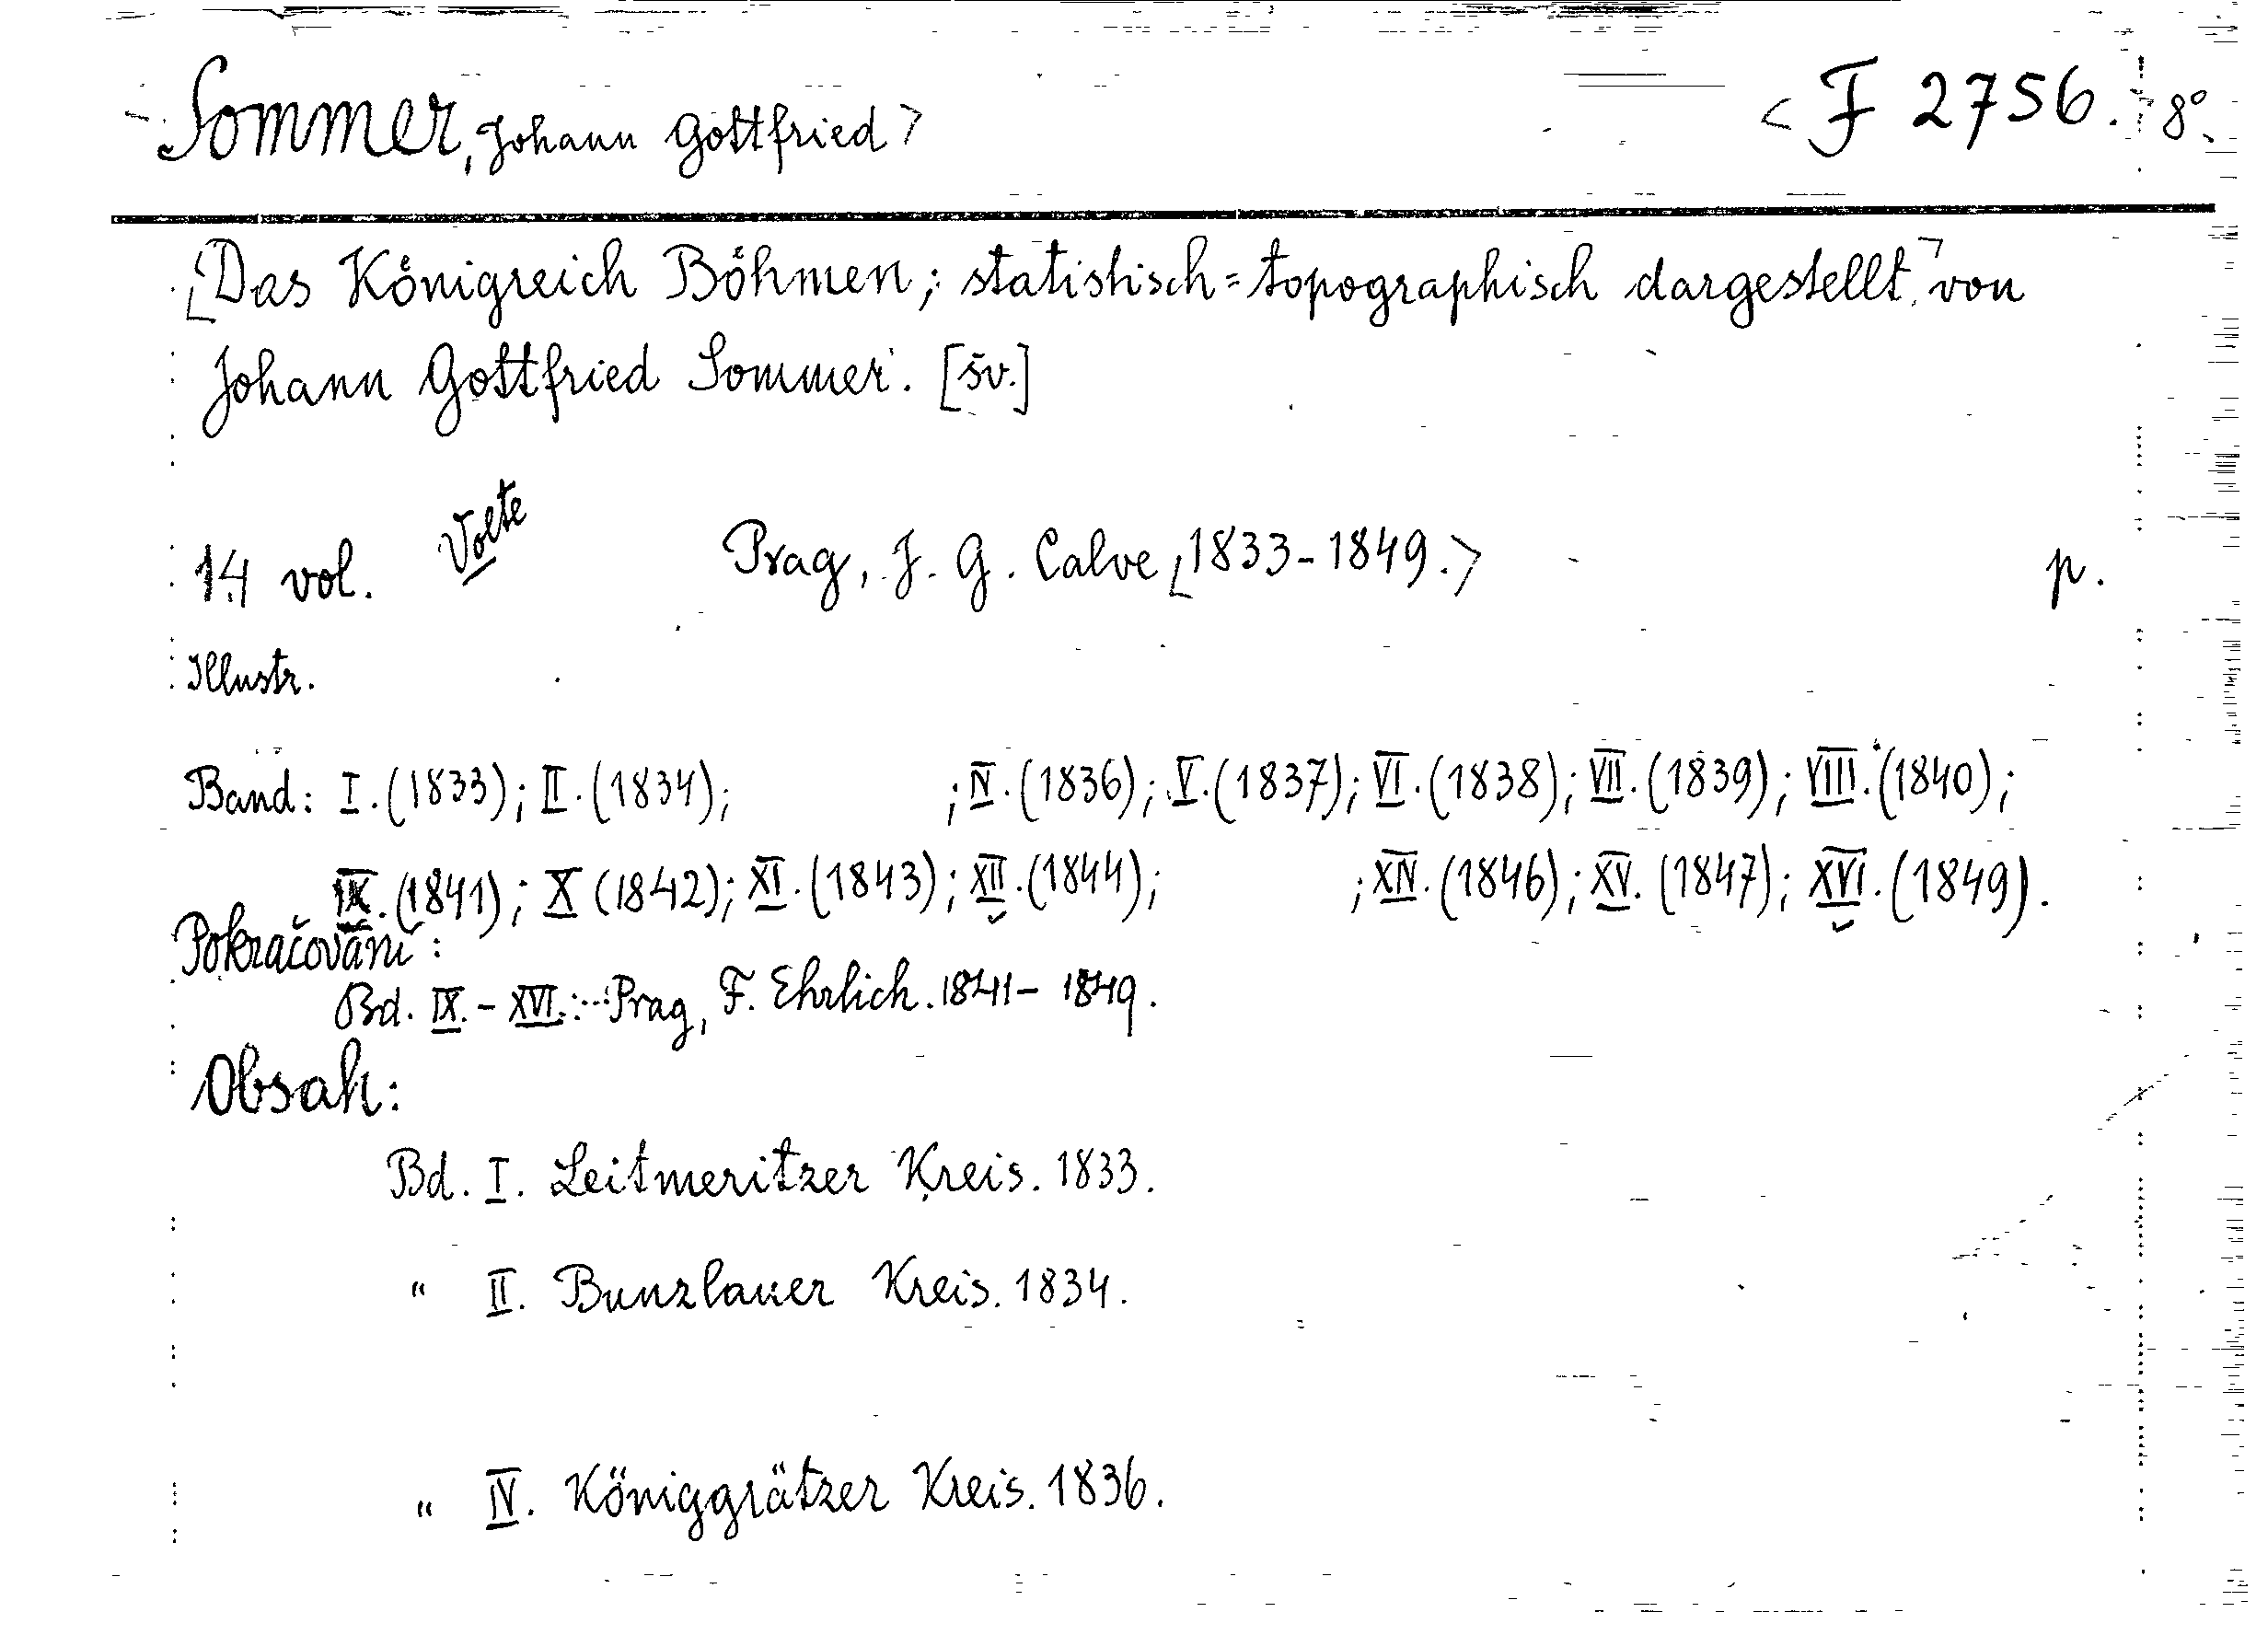 Sommer, Johann Gottfried> <F 2756. 8°.
[Das Königreich Böhmen; statistisch=topographisch dargestellt, von
Johann Gottfried Sommer. [šv.]
14 vol. Volte Prag, J. G. Calve, [1833-1849.> p.
Illustr.
Band: I. (1833); II. (1834); ; IV. (1836); V. (1837); VI. (1838); VII. (1839); VIII. (1840);
IX. (1841); X (1842); XI. (1843); XII. (1844); ; XIV. (1846); XV. (1847); XVI. (1849).
Pokračování:
Bd. IX. - XVI.: Prag, F. Ehrlich. 1841- 1849.
Obsah:
Bd. I. Leitmeritzer Kreis. 1833.
" II. Bunzlauer Kreis. 1834.
" IV. Königgrätzer Kreis. 1836.